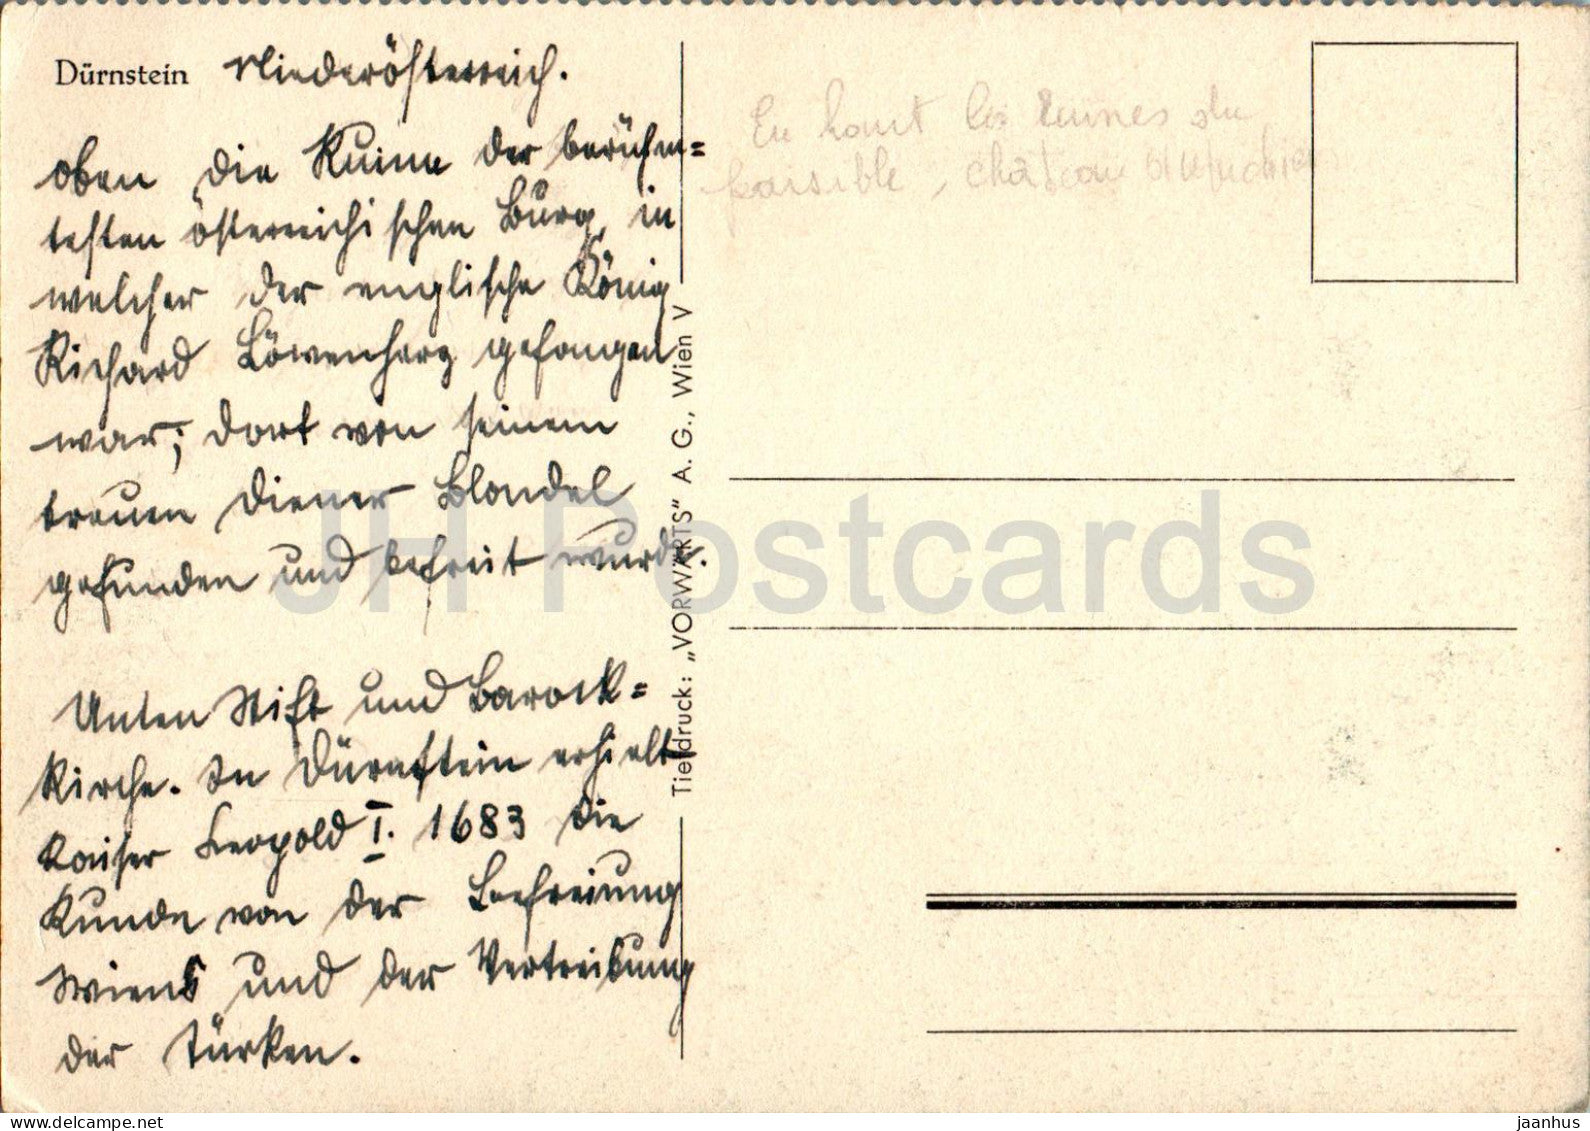 Dürnstein Niederösterreich.
oben die Ruine der berühm=
testen österreichischen Burg, in
welcher der englische König
Richard Löwenherz gefangen
war; dort von seinem
treuen Diener Blondel
gefunden und befreit wurde.
Unten Stift und Barock=
kirche. In Dürnstein erhielt
Kaiser Leopold I. 1683 die
Kunde von der Befreiung
Wiens und der Vertreibung
der Türken.
Tiefdruck: „VORWÄRTS" A. G., Wien V
En haut les ruines du
paisible, château
JH Postcards
www.delcampe.net
jaanhus